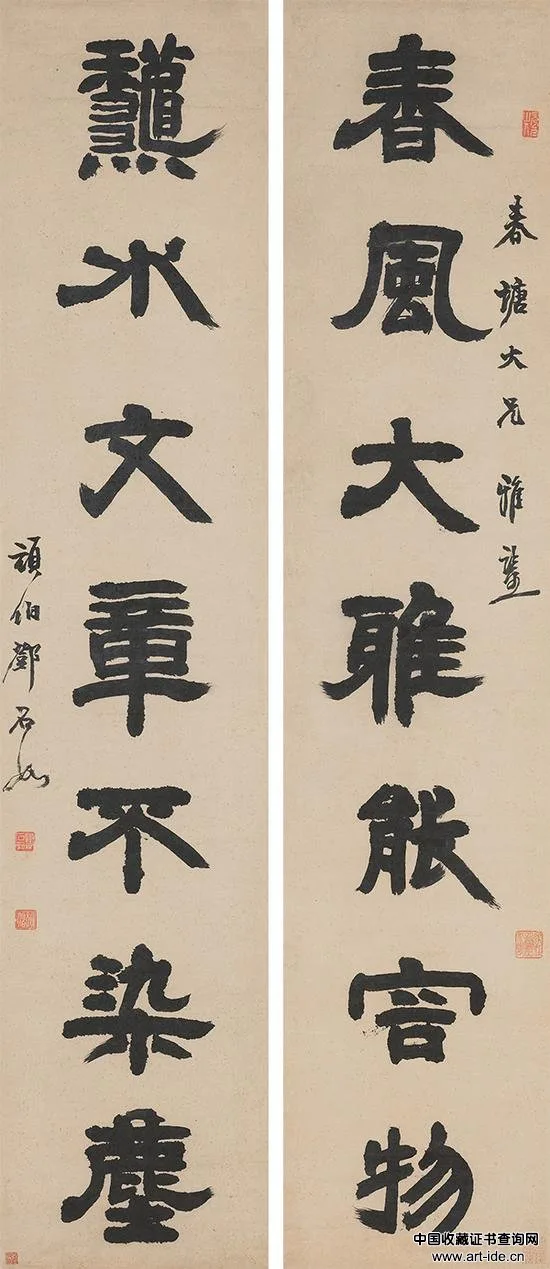 春塘大兄雅鑒
春風大雅能容物
龝水文章不染塵
頑伯鄧石如
中国收藏证书查询网
www.art-ide.cn